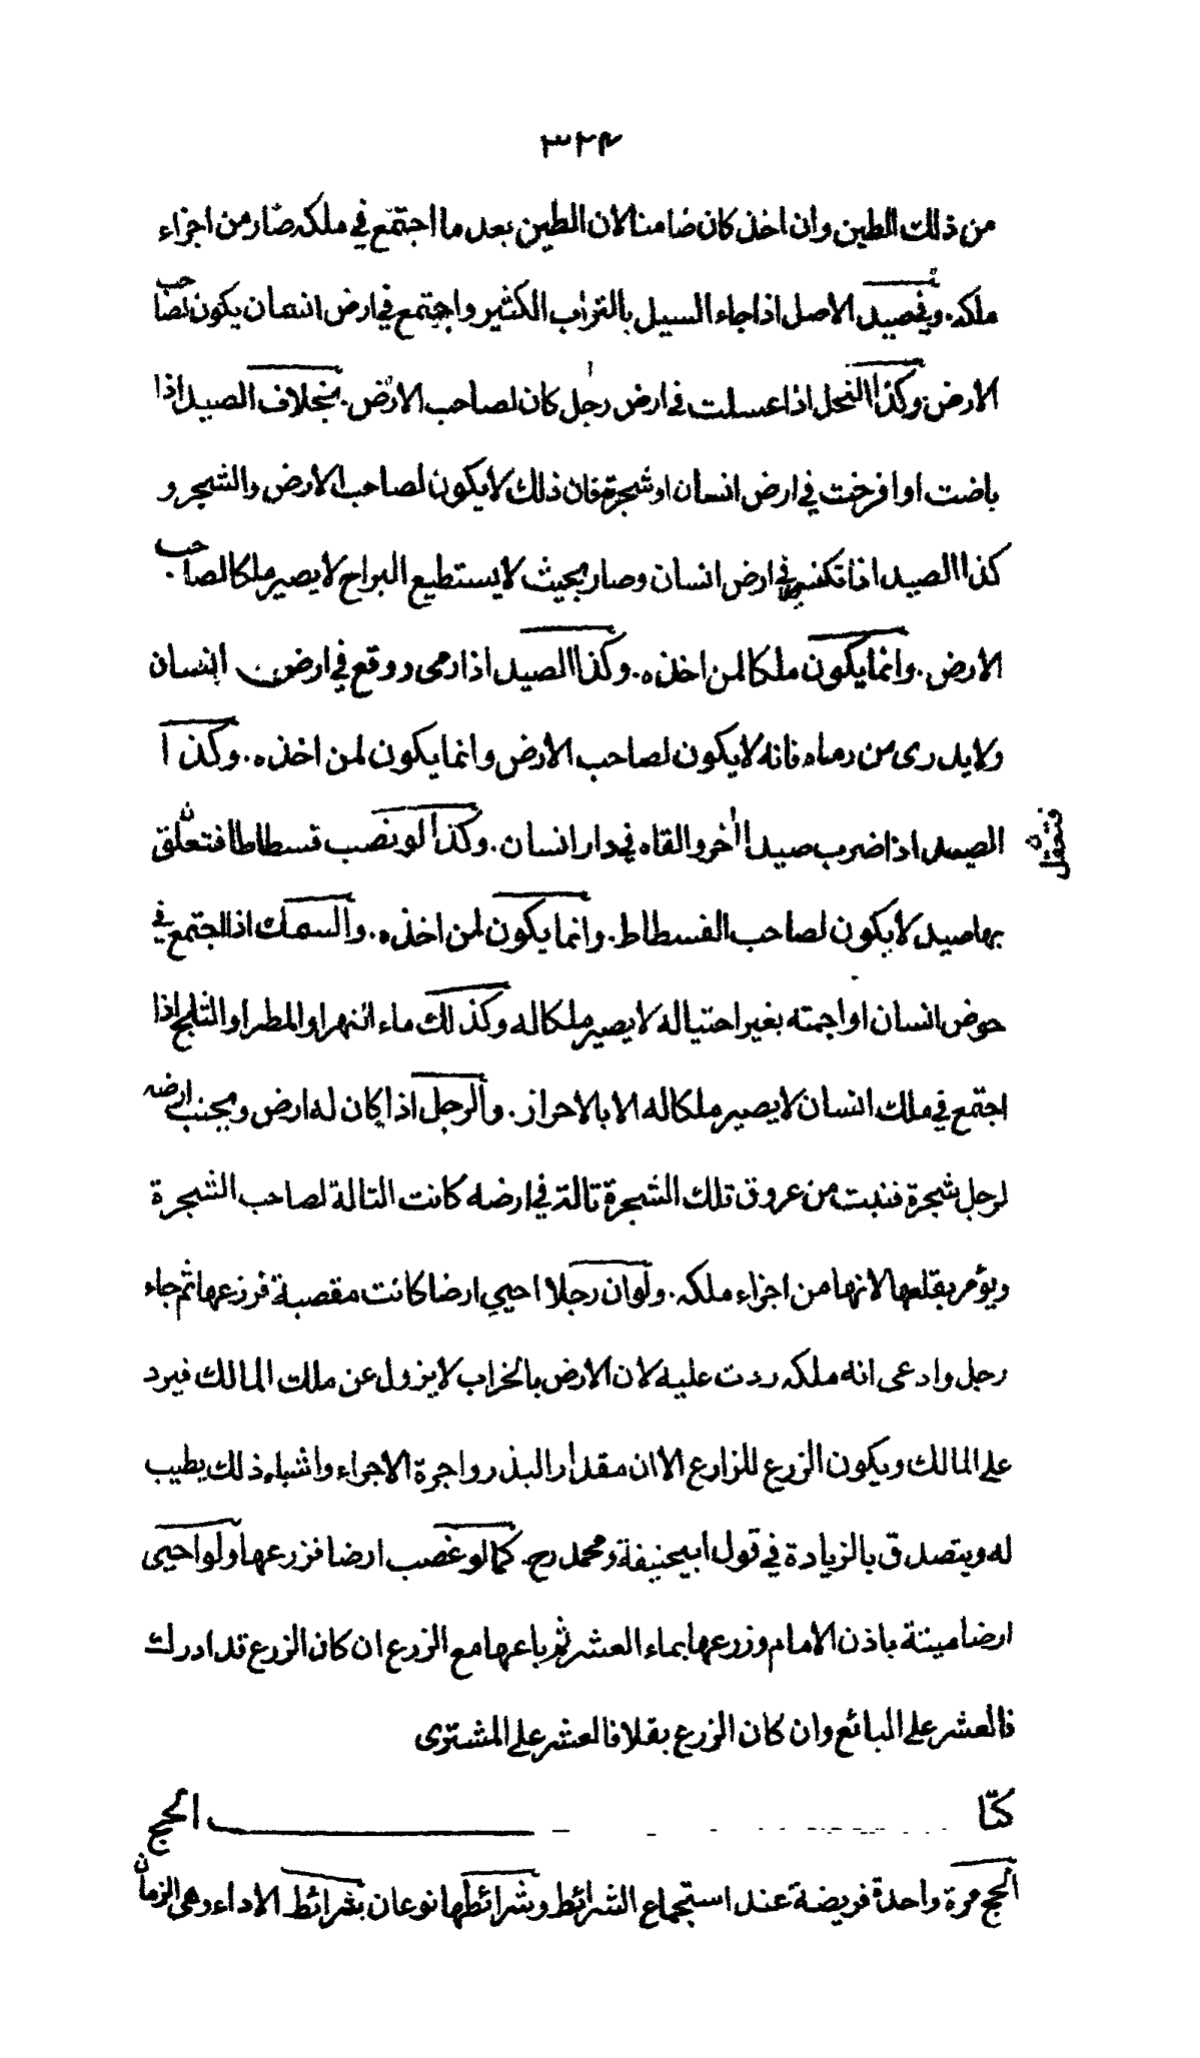 ٣٢٤
من ذلك الطين وان اخذ كان ضامنا لان الطين بعد ما اجتمع في ملكه صار من اجزاء
ملكه. وفي صيد الاصل اذا جاء السيل بالتراب الكثير واجتمع في ارض انسان يكون لصاحب
الارض. وكذا النحل اذا عسلت في ارض رجل كان لصاحب الارض. بخلاف الصيد اذا
باضت او افرخت في ارض انسان او شجرة فان ذلك لا يكون لصاحب الارض والشجر و
كذا الصيد اذا تكنس في ارض انسان وصار بحيث لا يستطيع البراح لا يصير ملكا لصاحب
الارض. وانما يكون ملكا لمن اخذه. وكذا الصيد اذا رمى ووقع في ارض انسان
ولا يدرى من رماه فانه لا يكون لصاحب الارض وانما يكون لمن اخذه. وكذا
الصيد اذا ضرب صيدا اخر والقاه في دار انسان. وكذا لو نصب فسطاطا فتعلق
بها صيد لا يكون لصاحب الفسطاط. وانما يكون لمن اخذه. والسمك اذا اجتمع في
حوض انسان او اجمته بغير احتياله لا يصير ملكا له وكذلك ماء النهر او المطر او الثلج اذا
اجتمع في ملك انسان لا يصير ملكا له الا بالاحراز. والرجل اذا كان له ارض وبجنب ارضه
لرجل شجرة فنبت من عروق تلك الشجرة تالة في ارضه كانت التالة لصاحب الشجرة
ويؤمر بقلعها لانها من اجزاء ملكه. ولو ان رجلا احيى ارضا كانت مقصبة فزرعها ثم جاء
رجل وادعى انه ملكه ردت عليه لان الارض بالخراب لا يزول عن ملك المالك فيرد
على المالك ويكون الزرع للزارع الا ان مقدار البذر واجرة الاجراء واشباه ذلك يطيب
له ويتصدق بالزيادة في قول ابيحنيفة ومحمد رح. كما لو غصب ارضا فزرعها ولو احيى
ارضا ميتة باذن الامام وزرعها بماء العشر ثم باعها مع الزرع ان كان الزرع قد ادرك
فالعشر على البائع وان كان الزرع بقلا فالعشر على المشترى
كتاب الحج
الحج مرة واحدة فريضة عند استجماع الشرائط وشرائطها نوعان شرائط الاداء وهى الزمان